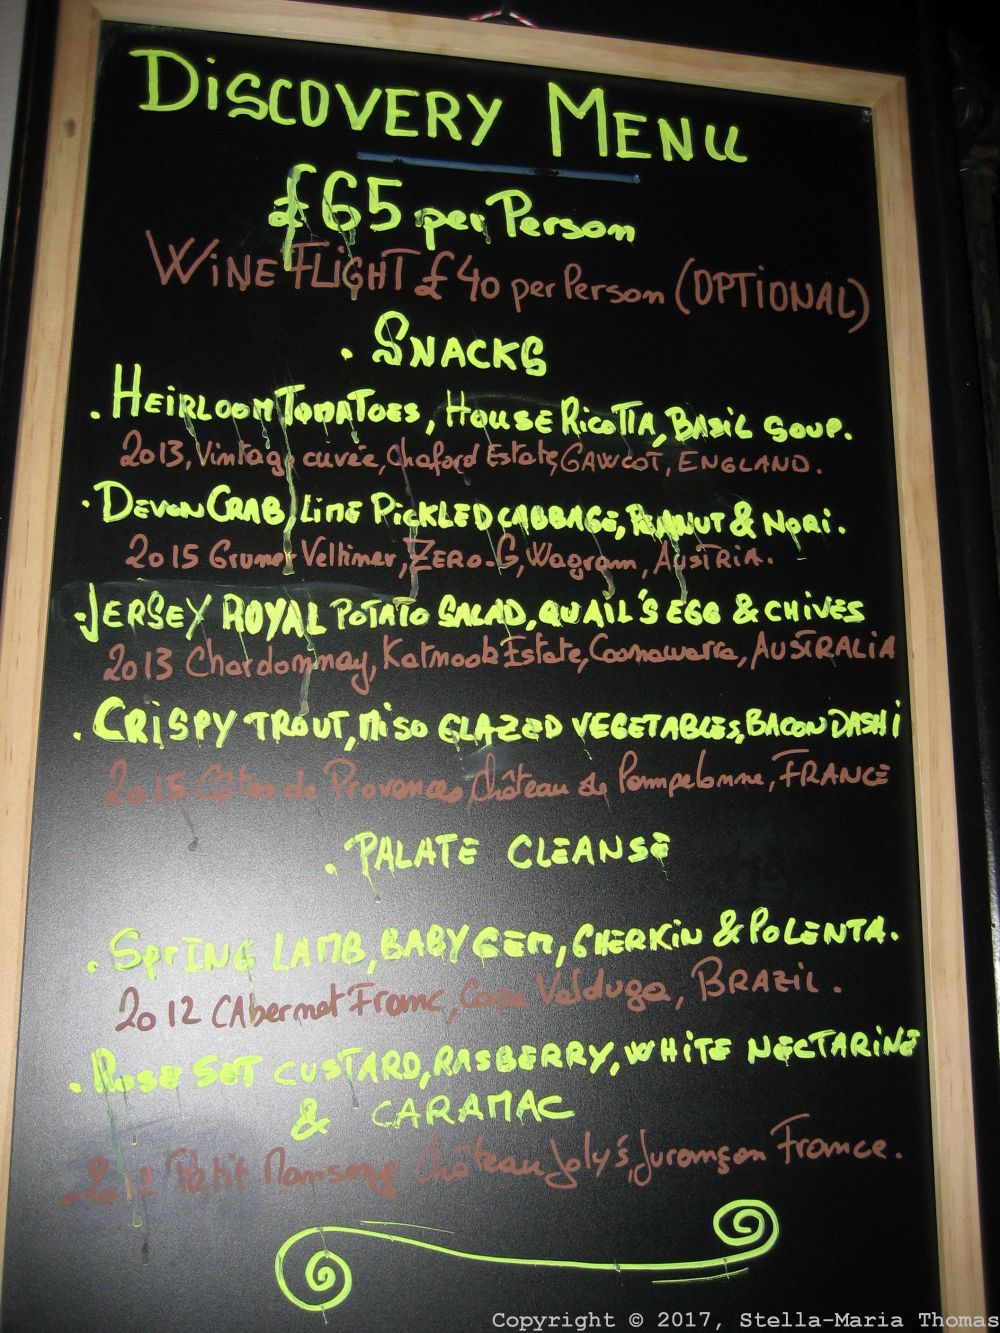 DISCOVERY MENU
£65 per Person
WINE FLIGHT £40 per Person (OPTIONAL)
. SNACKS
. HEIRLOOM TOMATOES, HOUSE RICOTTA, BASIL SOUP.
2013, Vintage cuvée, Chaford Estate, GAWCOT, ENGLAND.
. DEVON CRAB, LIME PICKLED CABBAGE, PEANUT & NORI.
2015 Gruner Veltliner, ZERO-G, Wagram, AUSTRIA.
. JERSEY ROYAL POTATO SALAD, QUAIL'S EGG & CHIVES
2013 Chardonnay, Katnook Estate, Coonawarra, AUSTRALIA
. CRISPY TROUT, MISO GLAZED VEGETABLES, BACON DASHI
2015 Côtes de Provence, Château de Pampelonne, FRANCE
. PALATE CLEANSE
. SPRING LAMB, BABY GEM, GHERKIN & POLENTA.
2012 CAbernet Franc, Casa Valduga, BRAZIL.
. ROSE SET CUSTARD, RASBERRY, WHITE NECTARINE
& CARAMAC
2012 Petit Manseng Château Joly's, Jurançon France.
Copyright © 2017, Stella-Maria Thomas